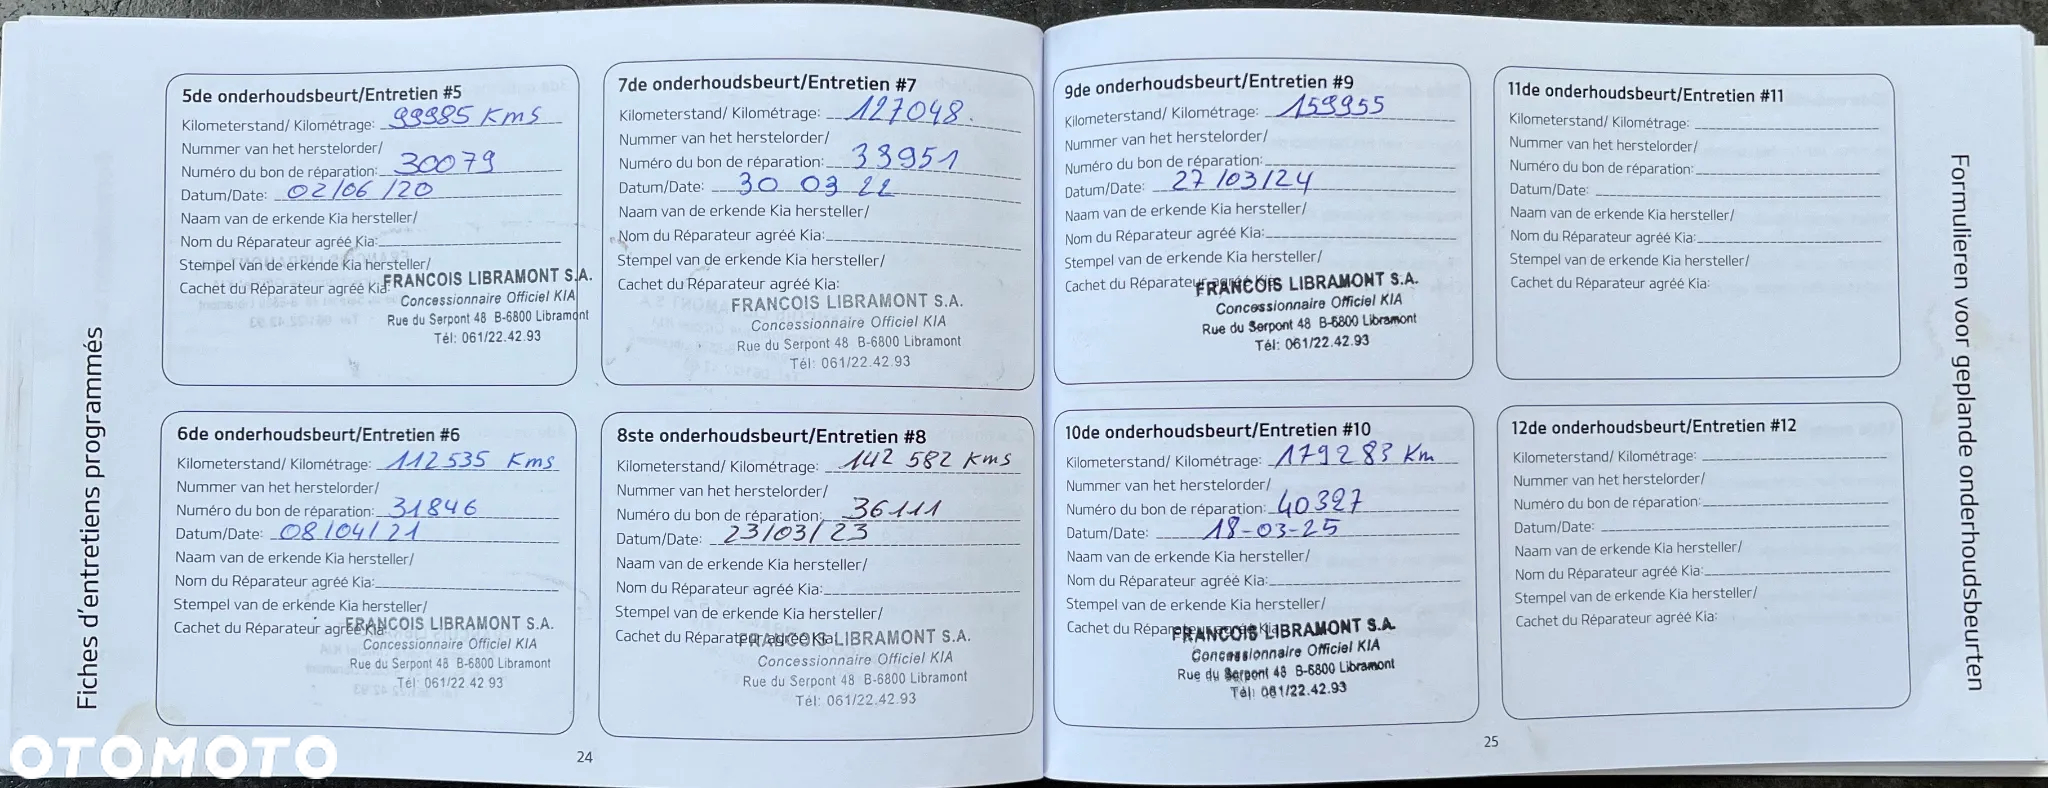 Fiches d'entretiens programmés
5de onderhoudsbeurt/Entretien #5
Kilometerstand/ Kilométrage: 99985 Kms
Nummer van het herstelorder/
Numéro du bon de réparation: 30079
Datum/Date: 02/06/20
Naam van de erkende Kia hersteller/
Nom du Réparateur agréé Kia:
Stempel van de erkende Kia hersteller/
Cachet du Réparateur agréé Kia:
FRANCOIS LIBRAMONT S.A.
Concessionnaire Officiel KIA
Rue du Serpont 48 B-6800 Libramont
Tél: 061/22.42.93
6de onderhoudsbeurt/Entretien #6
Kilometerstand/ Kilométrage: 112535 Kms
Nummer van het herstelorder/
Numéro du bon de réparation: 31846
Datum/Date: 08/04/21
Naam van de erkende Kia hersteller/
Nom du Réparateur agréé Kia:
Stempel van de erkende Kia hersteller/
Cachet du Réparateur agréé Kia:
FRANCOIS LIBRAMONT S.A.
Concessionnaire Officiel KIA
Rue du Serpont 48 B-6800 Libramont
Tél: 061/22.42.93
7de onderhoudsbeurt/Entretien #7
Kilometerstand/ Kilométrage: 127048.
Nummer van het herstelorder/
Numéro du bon de réparation: 33951
Datum/Date: 30 03 22
Naam van de erkende Kia hersteller/
Nom du Réparateur agréé Kia:
Stempel van de erkende Kia hersteller/
Cachet du Réparateur agréé Kia:
FRANCOIS LIBRAMONT S.A.
Concessionnaire Officiel KIA
Rue du Serpont 48 B-6800 Libramont
Tél: 061/22.42.93
8ste onderhoudsbeurt/Entretien #8
Kilometerstand/ Kilométrage: 142 582 Kms
Nummer van het herstelorder/
Numéro du bon de réparation: 36111
Datum/Date: 23/03/23
Naam van de erkende Kia hersteller/
Nom du Réparateur agréé Kia:
Stempel van de erkende Kia hersteller/
Cachet du Réparateur agréé Kia:
FRANCOIS LIBRAMONT S.A.
Concessionnaire Officiel KIA
Rue du Serpont 48 B-6800 Libramont
Tél: 061/22.42.93
24
9de onderhoudsbeurt/Entretien #9
Kilometerstand/ Kilométrage: 159955
Nummer van het herstelorder/
Numéro du bon de réparation:
Datum/Date: 27/03/24
Naam van de erkende Kia hersteller/
Nom du Réparateur agréé Kia:
Stempel van de erkende Kia hersteller/
Cachet du Réparateur agréé Kia:
FRANCOIS LIBRAMONT S.A.
Concessionnaire Officiel KIA
Rue du Serpont 48 B-6800 Libramont
Tél: 061/22.42.93
10de onderhoudsbeurt/Entretien #10
Kilometerstand/ Kilométrage: 179283 Km
Nummer van het herstelorder/
Numéro du bon de réparation: 40327
Datum/Date: 18-03-25
Naam van de erkende Kia hersteller/
Nom du Réparateur agréé Kia:
Stempel van de erkende Kia hersteller/
Cachet du Réparateur agréé Kia:
FRANCOIS LIBRAMONT S.A.
Concessionnaire Officiel KIA
Rue du Serpont 48 B-6800 Libramont
Tél: 061/22.42.93
11de onderhoudsbeurt/Entretien #11
Kilometerstand/ Kilométrage:
Nummer van het herstelorder/
Numéro du bon de réparation:
Datum/Date:
Naam van de erkende Kia hersteller/
Nom du Réparateur agréé Kia:
Stempel van de erkende Kia hersteller/
Cachet du Réparateur agréé Kia:
12de onderhoudsbeurt/Entretien #12
Kilometerstand/ Kilométrage:
Nummer van het herstelorder/
Numéro du bon de réparation:
Datum/Date:
Naam van de erkende Kia hersteller/
Nom du Réparateur agréé Kia:
Stempel van de erkende Kia hersteller/
Cachet du Réparateur agréé Kia:
25
Formulieren voor geplande onderhoudsbeurten
OTOMOTO